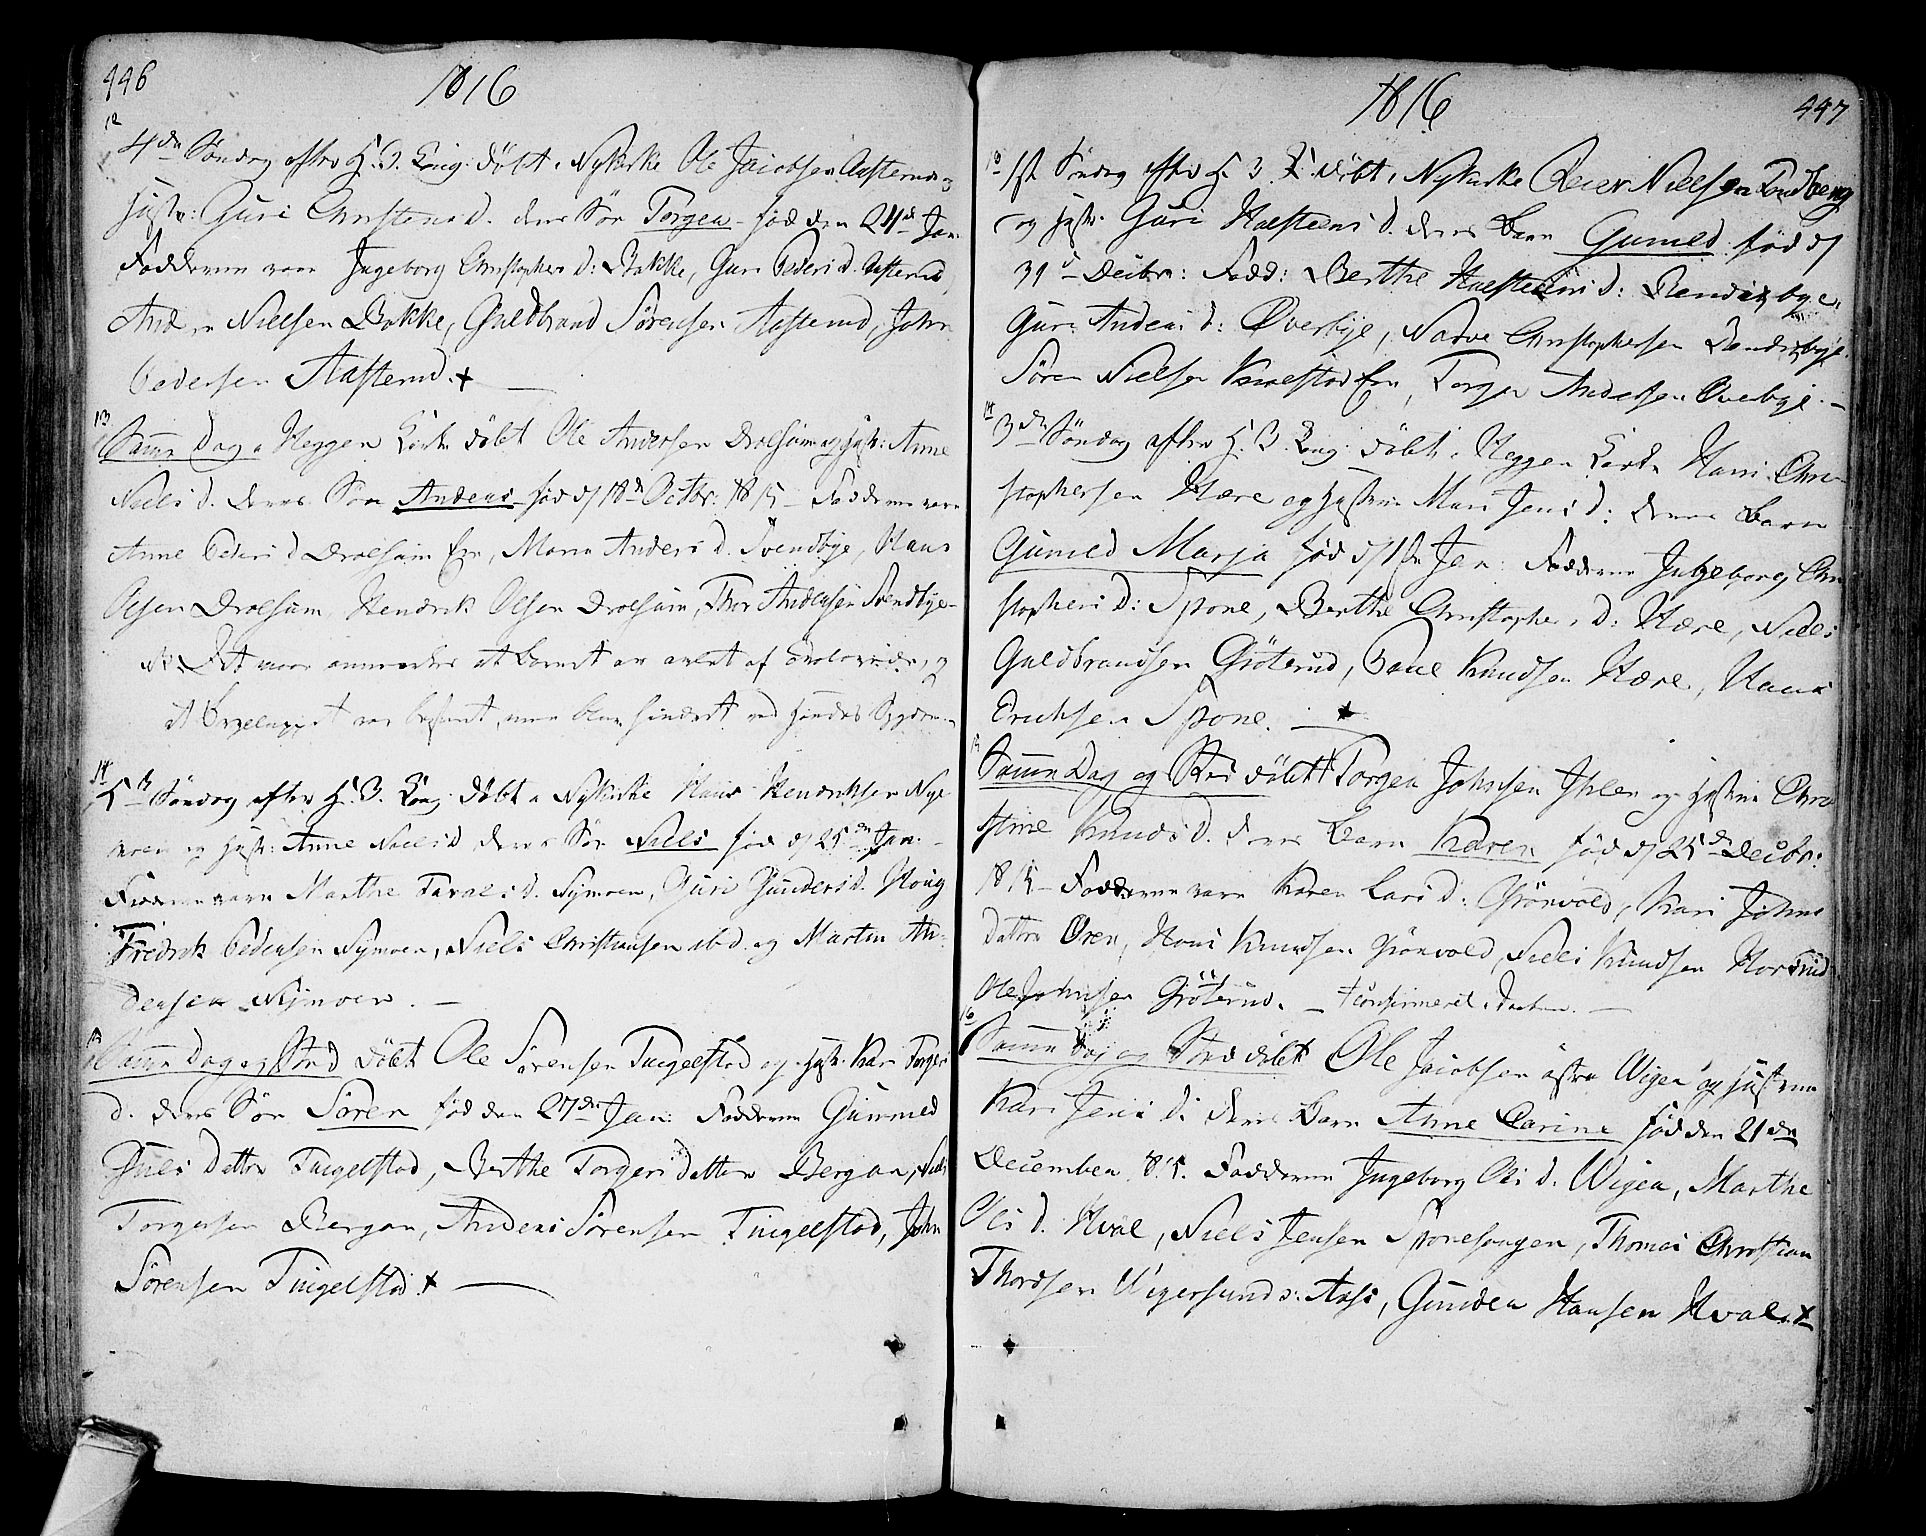 446
1816
12
4de Søndag efter H. 3 Kong: døbt i Nykirke Ole Jacobsen Aasterud og
Hustr: Guri Christensd. deres Søn Torgen fød den 24de Jan.
Fadderne vare Ingeborg Christophersd: Bakke, Guri Pedersd. Aasterud
Anders Nielsen Bakke, Guldbrand Sörensen Aasterud, John
Pedersen Aasterud. +
13
Samme Dag i Heggen Kirke døbt Ole Andersen Drolsum og Hustr: Anne
Nielsd. deres Søn Anders fød d 18de Octbr: 1815 Fadderne vare
Anne Pedersd Drolsum Eie, Maren Andersd. Svendbye, Hans
Olsen Drolsum, Hendrik Olsen Drolsum, Thor Andersen Svendbye
NB. Det maae anmærkes at Barnet er avlet af og
at var bestemt, men blev hindret ved Hendes Sygdom
14
5te Søndag efter H. 3. Kong: døbt i Nykirke Hans Hendriksen Nye-
moen og Hustr: Anne Nielsd deres Søn Niels fød d 25de Jan:
Fadderne vare Marthe d. Nymoen, Guri Gundersd. Houg
Fredrik Pedersen Nymoen, Niels Christiansen ibd. og Martin An-
dersen Nymoen. —
15
Samme Dag og Sted døbt Ole Sörensen Tingelstad og Hustr. Kari Torgers
d. deres Søn Sören fød den 27de Jan: Fadderne Gunnild
Juels Datter Tingelstad, Berthe Torgers datter Bergan, Niels
Torgersen Bergan, Anders Sörensen Tingelstad, John
Sörensen Tingelstad. + —
1816
447
13
1ste Søndag efter H. 3 K: døbt i Nykirke Reier Nielsen Landberg
og Hustr. Guri Halsteensd. deres Barn Gunild fød d
31te Decbr: Fadd: Berthe Halsteensd: Rendesbye,
Guri Andersd: Overbye, Narve Christophersen Rendesbye
Sören Nielsen Knalstad Eie, Torger Andersen Overbye. —
14
3de Søndag efter H. 3 Kong: døbt i Heggen Kirke Hans Chri-
stophersen Hære og Hustrue Mari Jensd: deres Barn
Gunild Marja fød d 1ste Jan: Fadderne Ingeborg Chri
stophersd: Spone, Berthe Christophersd: Hære, Niels
Guldbrandsen Gröterud, Poul Knudsen Hære, Hans
Erichsen Spone. — +
15
Samme Dag og Sted døbt Torger Johnsen Ihlen og Hustrue Chri
stine Knudsd. deres Barn Karen fød d 25de Decbr:
1815 Fadderne vare Karen Larsd: Grönvold, Kari Johns
datter Oren, Hans Knudsen Grönvold, Niels Knudsen Horsrud
Ole Johnsen Gröterud. — + Confirmeret i —
16
Samme Dag og Sted døbt Ole Jacobsen östre Wigen og Hustrue
Kari Jensd: deres Barn Anne Carine fød den 21de
December 1815. Fadderne Ingeborg Olsd. Wigen, Marthe
Olsd. Hval, Niels Jensen Sponesengen, Thomas Christian
Thordsen Wigersunds: Aasi, Gunder Hansen Hval. +